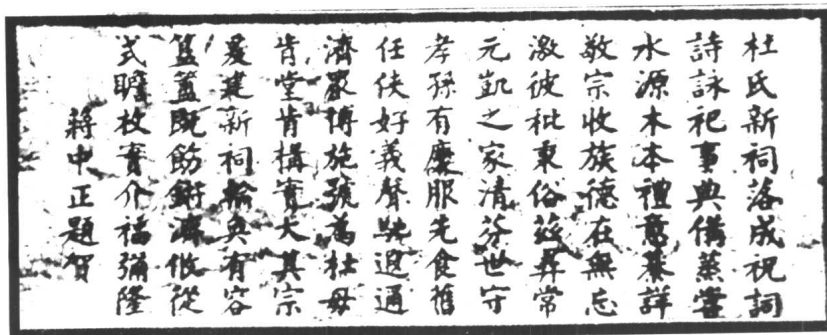 杜氏新祠落成祝詞
詩詠祀事典備蒸嘗
水源木本禮意綦詳
敬宗收族德在無忘
激彼秕秉俗茲彝常
元凱之家清芬世守
孝孫有慶服先食舊
任俠好義聲馳遐邇
濟眾博施號為杜母
肯堂肯構寔大其宗
爰建新祠輪奐有容
簠簋既飭鏘濟攸從
式瞻枚實介福彌隆
蔣中正題賀